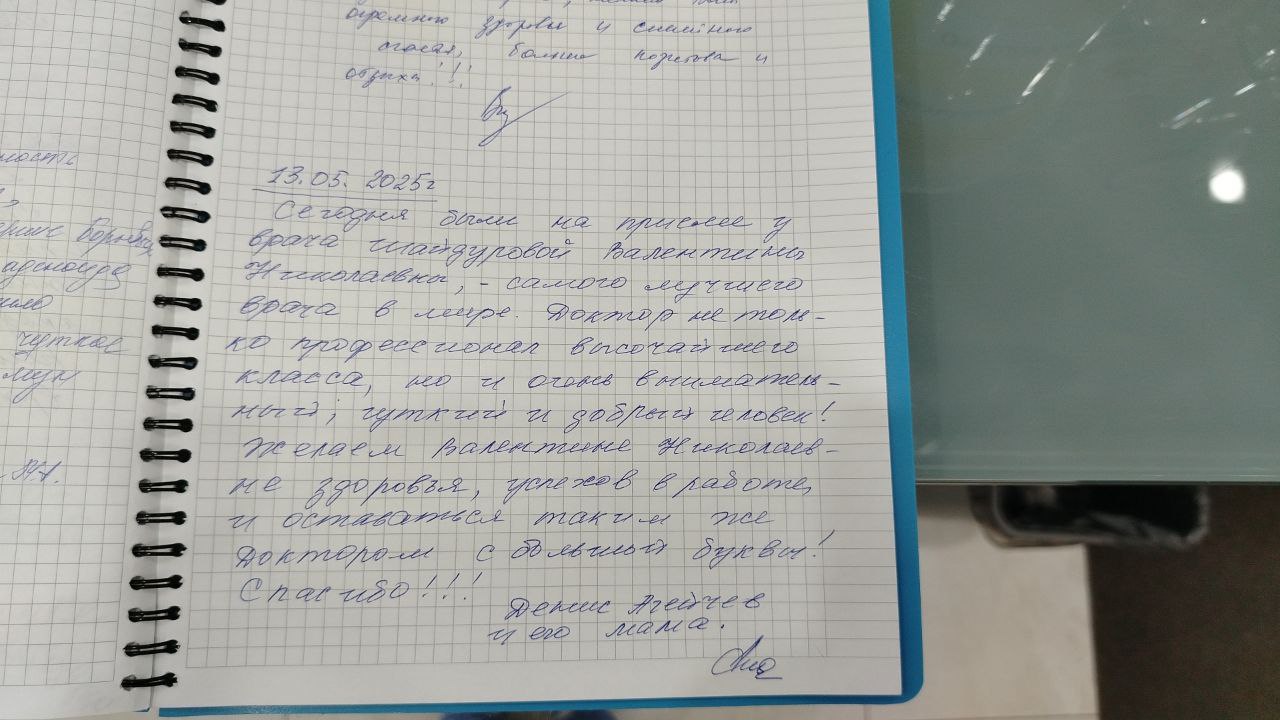 огромного здоровья и семейного
очага, больше позитива и
отдыха!!!
13.05. 2025г
Сегодня были на приеме у
врача Шайдуровой Валентины
Николаевны, - самого лучшего
врача в мире. Доктор не толь-
ко профессионал высочайшего
класса, но и очень вниматель-
ный, чуткий и добрый человек!
Желаем Валентине Николаев-
не здоровья, успехов в работе,
и оставаться таким же
Доктором с большой буквы!
Спасибо!!!
Денис Агейчев
и его мама.
ность
чуткое
А.А.